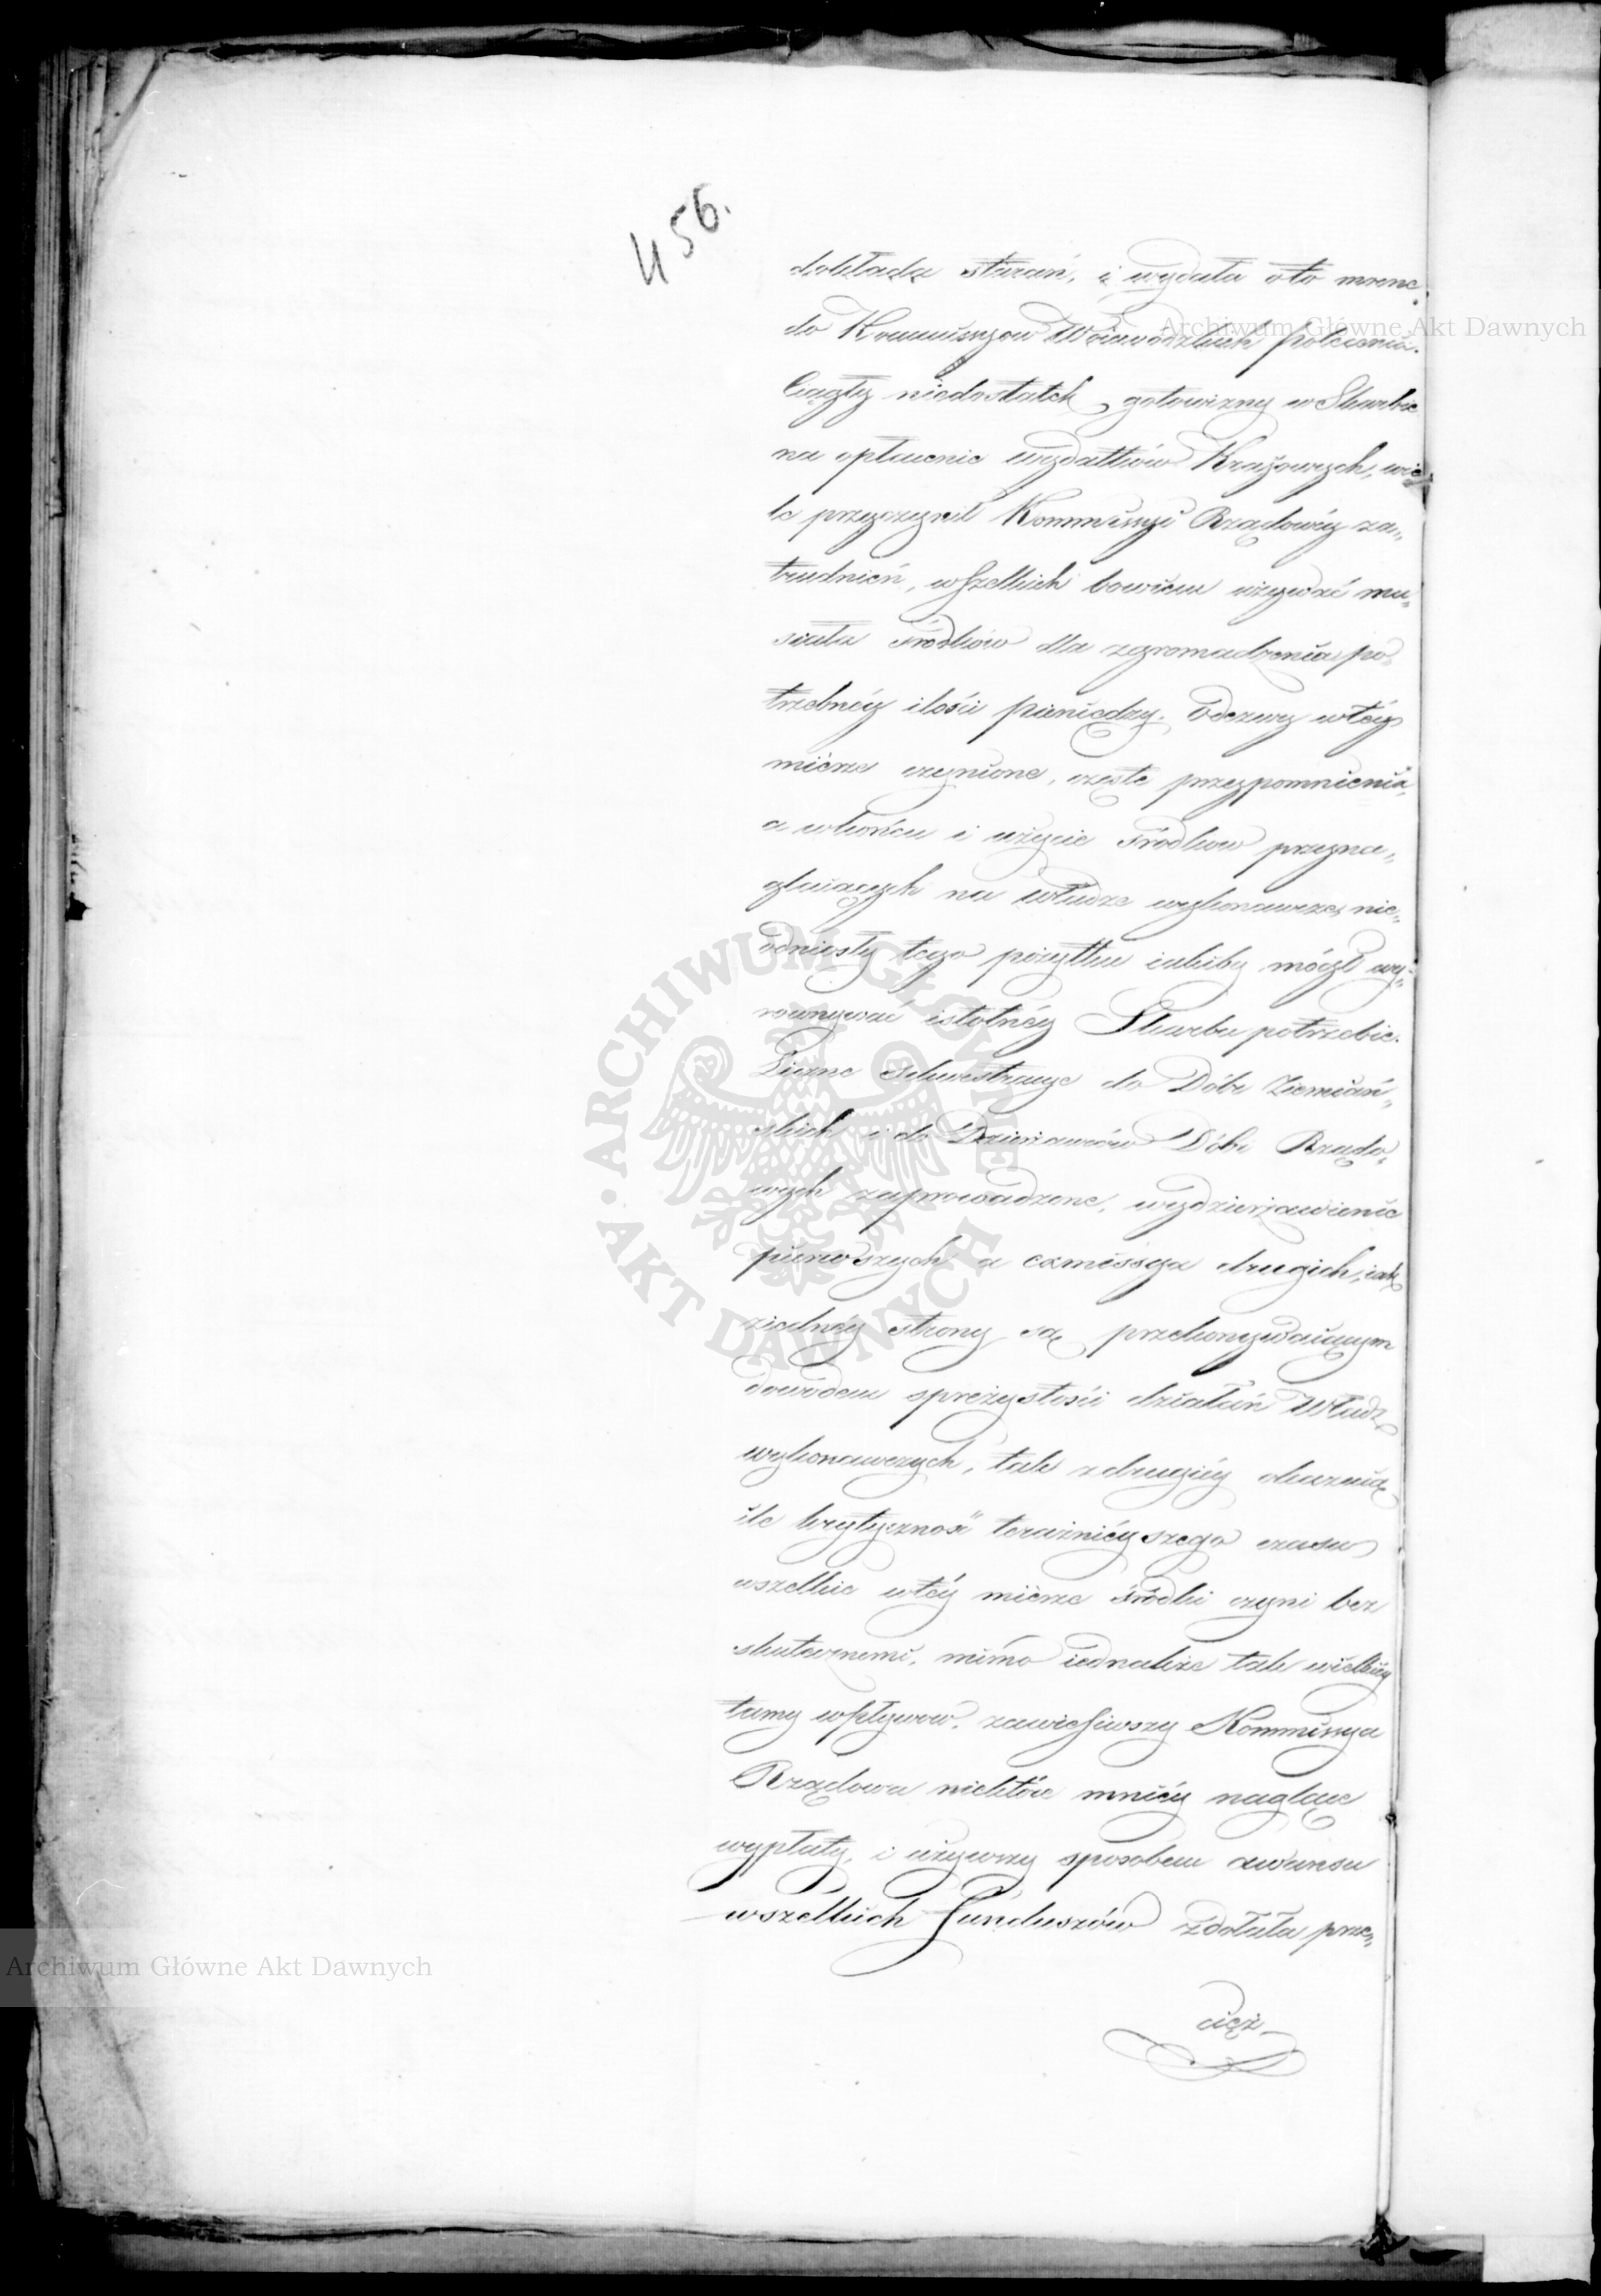 456.
dokłada starań, i wydała oto mocne
do Kommissyow Woiewodzkich polecenia.
Ciągły niedostatek gotowizny w Skarbie
na opłacenie wydatków Kraiowych, wie
le przyczynił Kommissyi Rządowéy za„
trudnień, wszelkich bowiem używać mu„
siała środków dla zgromadzenia po„
trzebnéy ilości pieniędzy. Odezwy w téy
mierze czynione, częste przypomnienia,
a wkońcu i użycie środkow przyna„
glaiących na władze wykonawcze, nie„
odniosły tego pożytku iakiby mógł wy„
rownywać istotnéy Skarbu potrzebie.
Liczne Sekwestracye do Dóbr Ziemiań„
skich i do Dzierżawców Dóbr Rządo„
wych zaprowadzone, wydzierżawienie
pierwszych a exmissya drugich, iak
ziednéy strony są przekonywaiącym
dowodem sprężystości działań Władz
wykonawczych, tak zdrugiéy okazuią
ile krytyczność teraźniéyszego czasu
wszelkie w téy mierze środki czyni bez
skutecznemi, mimo iednakże tak wielkiéy
tamy wpływow, zawiesiwszy Kommissya
Rządowa niektóre mniéy naglące
wypłaty, i używszy sposobem awansu
wszelkich funduszów zdołała prze„
cięż
Archiwum Główne Akt Dawnych
Archiwum Główne Akt Dawnych
ARCHIWUM GŁÓWNE • AKT DAWNYCH •